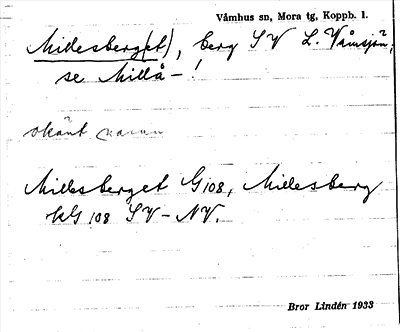 Våmhus sn, Mora tg, Koppb. l.
Millesberg(et), berg SV L. Våmsjön,
se Millå- !
okänt namn
Millesberget G108, Millesberg
kG 108 SV-NV.
Bror Lindén 1933